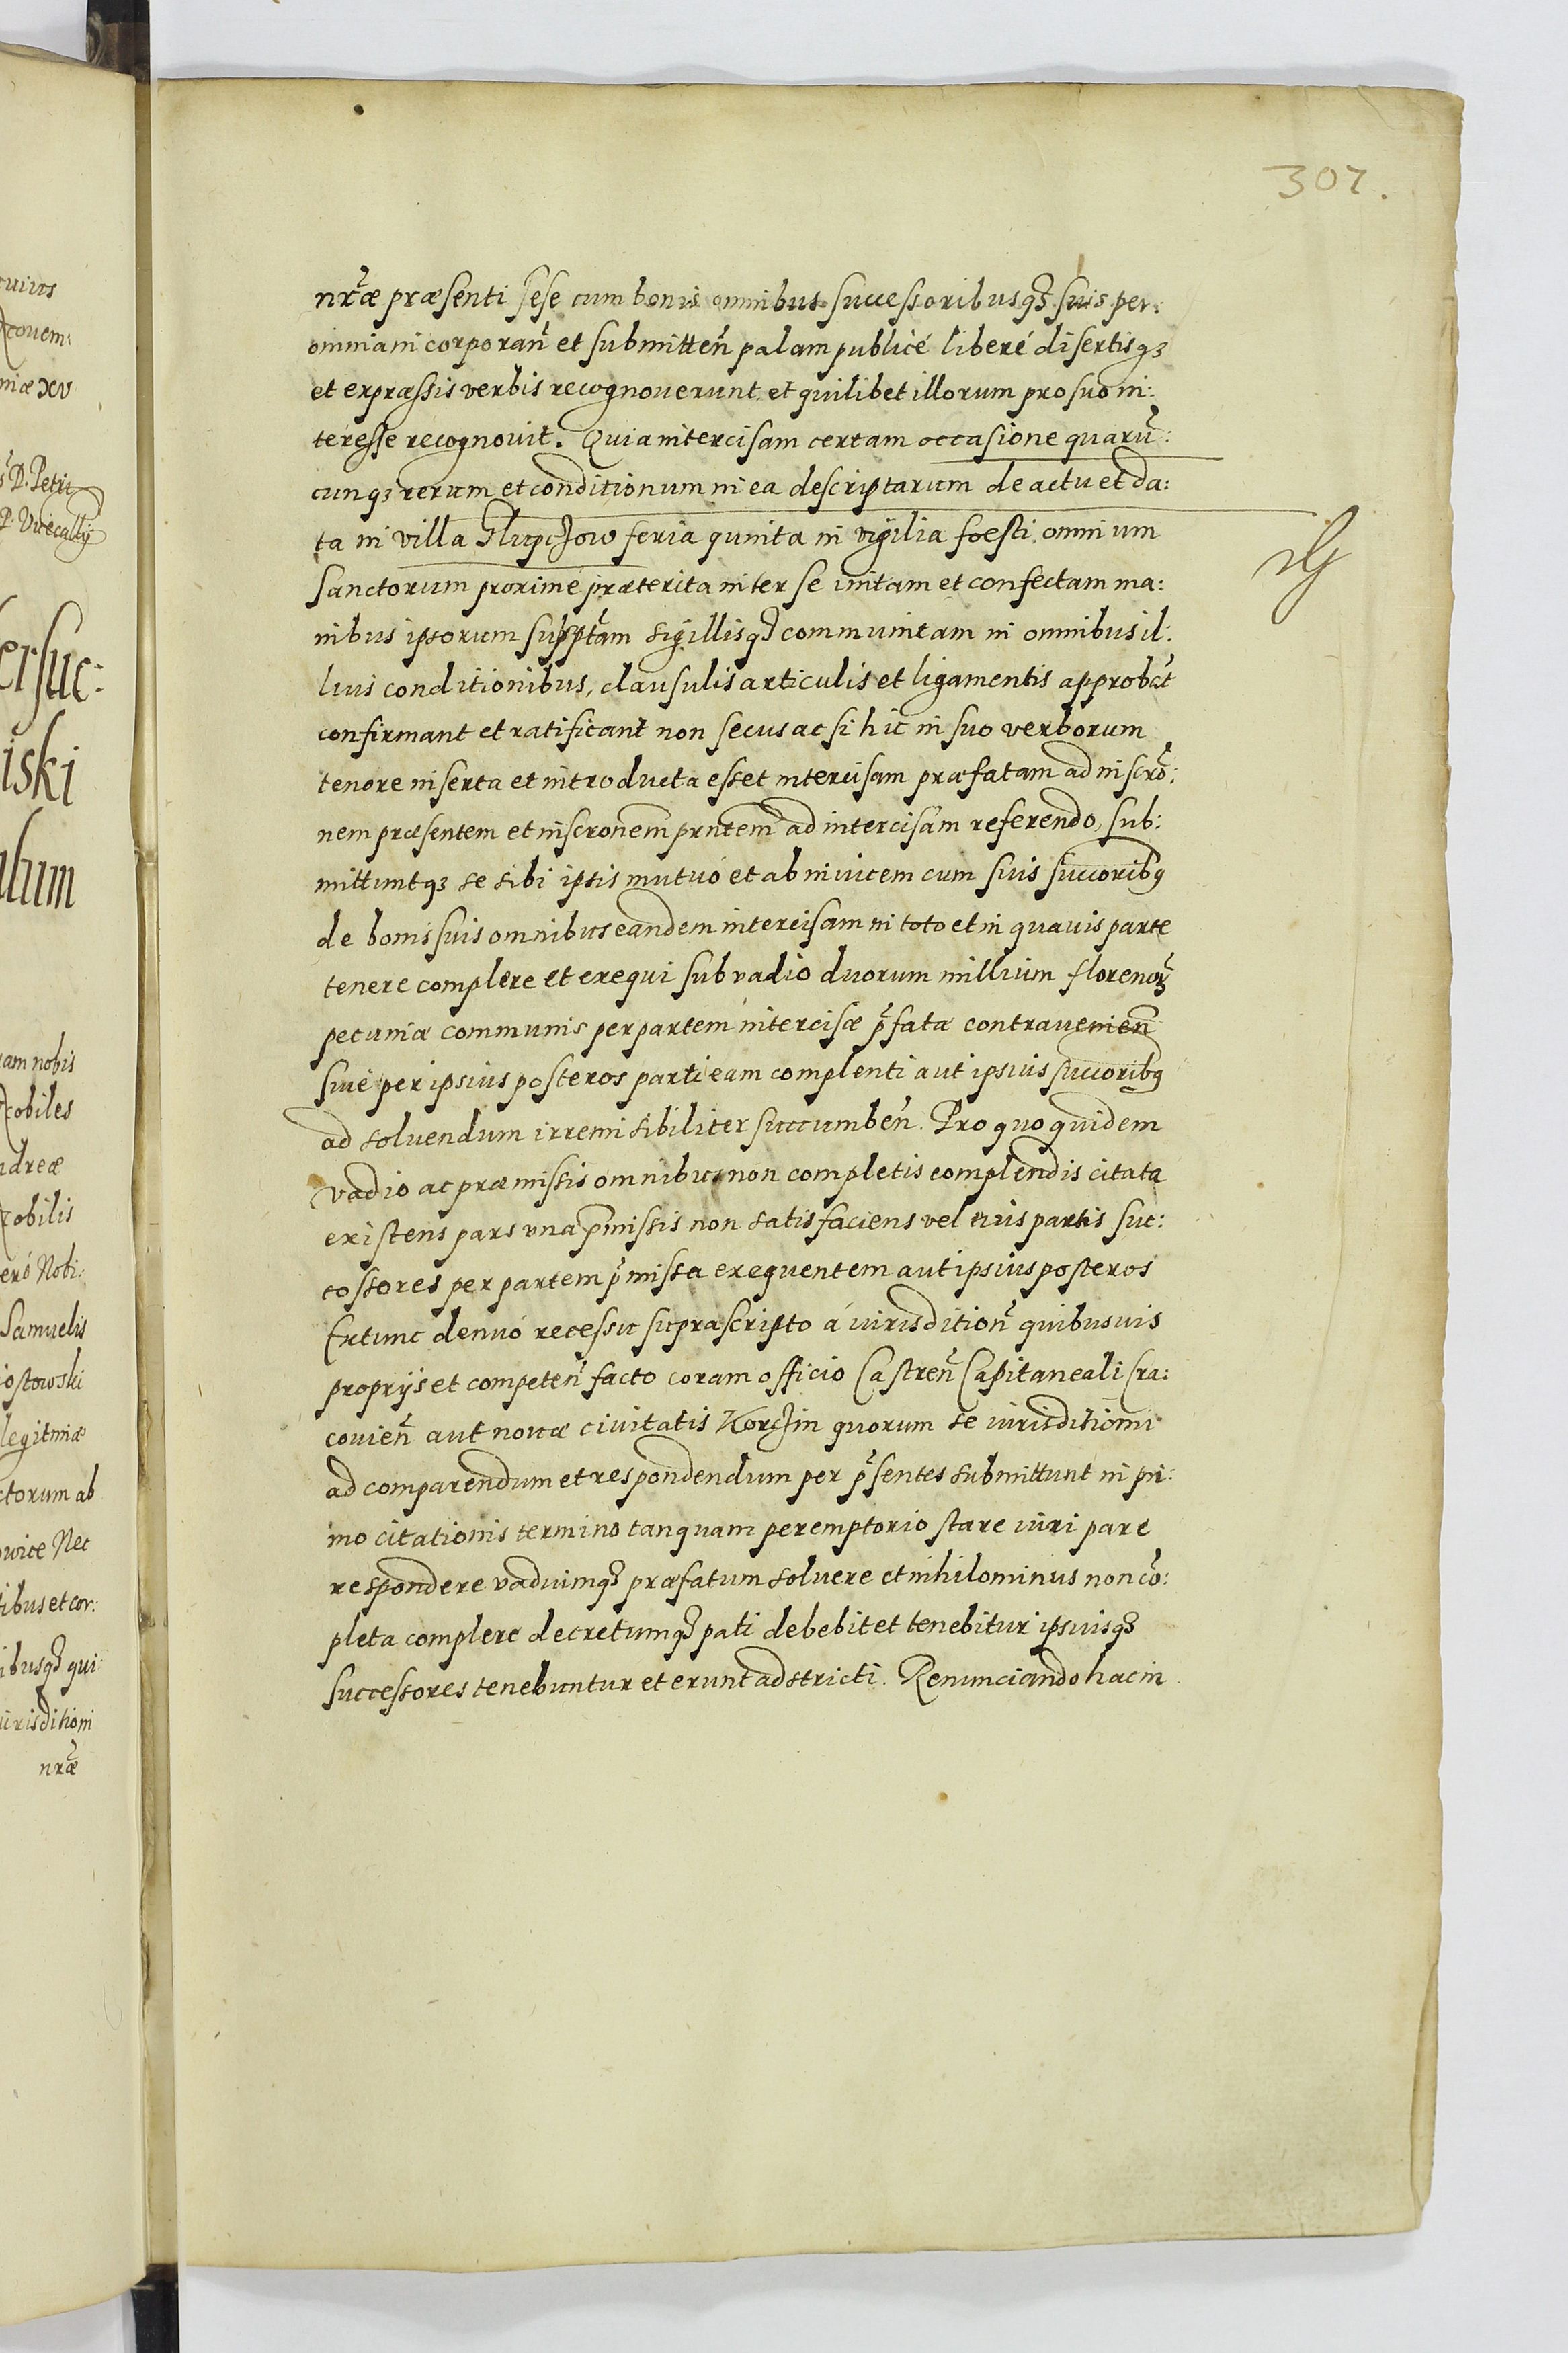 307.
nr̃æ præsenti sese cum bonis omnibus successoribusqꝫ suis per:
omnia incorporan̄ et submitten̄ palam publicé liberé disertisqꝫ
et expræssis verbis recognoverunt et quilibet illorum pro suo in:
teresse recognovit. Quia intercisam certam occasione quarũ:
cunqꝫ rerum et conditionum in ea descriptarum de actu et da:
ta in villa Głupczow feria quinta in vigilia foesti omnium
Sanctorum proximé præterita inter se initam et confectam ma:
nibus ipsorum supp̃tam sigillisqꝫ communitam in omnibus il:
lius conditionibus, clausulis articulis et ligamentis approbãt
confirmant et ratificant non secus ac si hic in suo verborum
tenore inserta et introducta esset intercisam præfatam ad inscrõ:
nem præsentem et inscronem̃ prñtem ad intercisam referendo, sub:
mittuntqꝫ se sibi ipsis mutuó et ab invicem cum suis succoribꝰ
de bonis suis omnibus eandem intercisam in toto et in quavis parte
tenere complere et exequi sub vadio duorum millium florenorꝫ
pecuniæ communis per partem intercisæ p̃fatæ contravenien̄
sive per ipsius posteros parti eam complenti aut ipsius succoribꝰ
ad solvendum irremisibiliter succumben̄. Pro quo quidem
vadio ac præmissis omnibus non completis complendis citata
existens pars una p̃missis non satisfaciens vel eius partis suc:
cessores per partem p̃missa exequentem aut ipsius posteros
Extunc denuó recessu suprascripto á iurisdition̄ quibusvis
proprijs et competen̄ facto coram officio Castren̄ Capitaneali Cra:
covien̄ aut novæ civitatis Korczin quorum se iurisditioni
ad comparendum et respondendum per p̃sentes submittunt in pri:
mo citationis termino tanquam peremptorio stare iuri pare
respondere vadiumqꝫ præfatum solvere et nihilominus non cõ:
pleta complere decretumqꝫ pati debebit et tenebitur ipsiusqꝫ
successores tenebuntur et erunt adstricti. Renunciando hac in